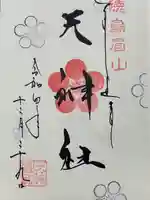 徳島眉山
天神社
令和四年
十二月二十九日